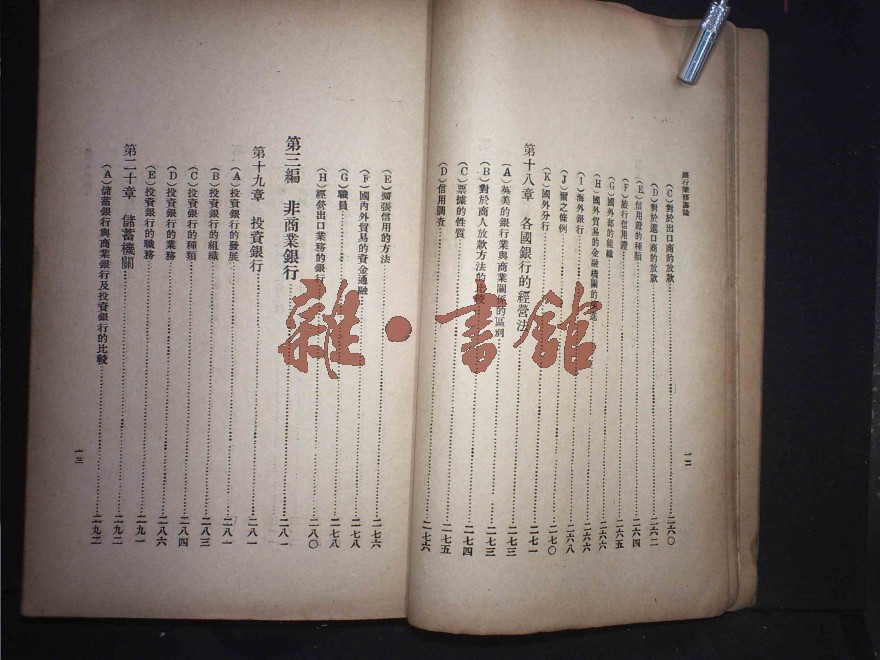 銀行業務論
(C)對於出口商的放款……二六〇
(D)對於進口商的放款……二六二
(E)信用證的種類……二六四
(F)旅行信用證……二六五
(G)國外部的組織……二六六
(H)國外貿易的金融機關的……二六六
(I)海外銀行……二六八
(J)爾之條例……二七〇
(K)國外分行……二七一
第十八章 各國銀行的經營法……二七三
(A)英美的銀行業與商業關係的區別……二七三
(B)對於商人放款方法的比較……二七三
(C)票據的性質……二七四
(D)信用調查……二七五
一二
(E)擴張信用的方法……二七六
(F)國內外貿易的資金通融……二七八
(G)職員……二七八
(H)經營出口業務的銀行……二八〇
第三編 非商業銀行……二八一
第十九章 投資銀行……二八一
(A)投資銀行的發展……二八一
(B)投資銀行的組織……二八三
(C)投資銀行的種類……二八四
(D)投資銀行的業務……二八六
(E)投資銀行的職務……二九一
第二十章 儲蓄機關……二九二
(A)儲蓄銀行與商業銀行及投資銀行的比較……二九二
一三
雜·書館